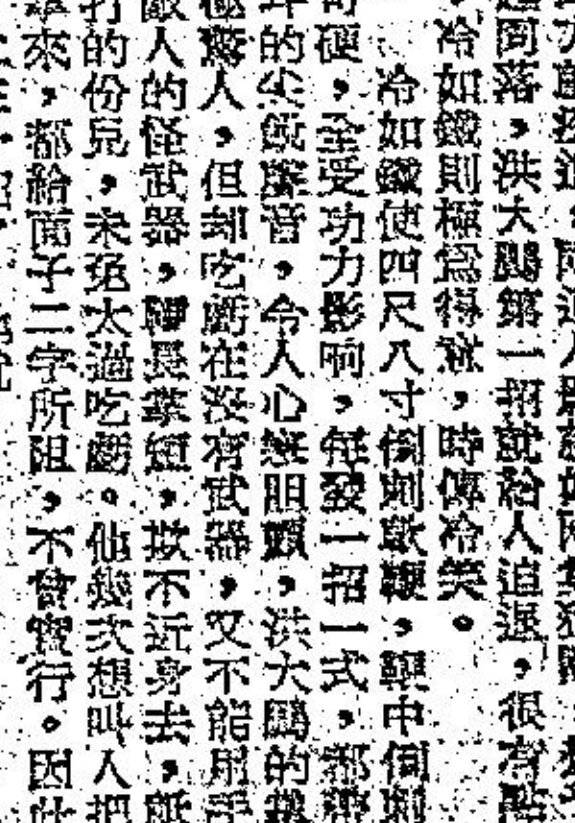 落，洪大鵬第一招就給人迫退，很有點
冷如鐵則極爲得意，時傳冷笑。
冷如鐵使四尺八寸倒刺軟鞭，鞭中倒刺
硬，全受功力影响，每發一招一式，都帶
的尖銳聲音，令人心寒胆顫，洪大鵬的
驚人，但却吃虧在沒有武器，又不能用手
敵人的怪武器，鞭長拳短，欺不近身去，
打的份兒，未免太過吃虧。他幾次想叫人把
來，都給面子二字所阻，不曾實行。因此